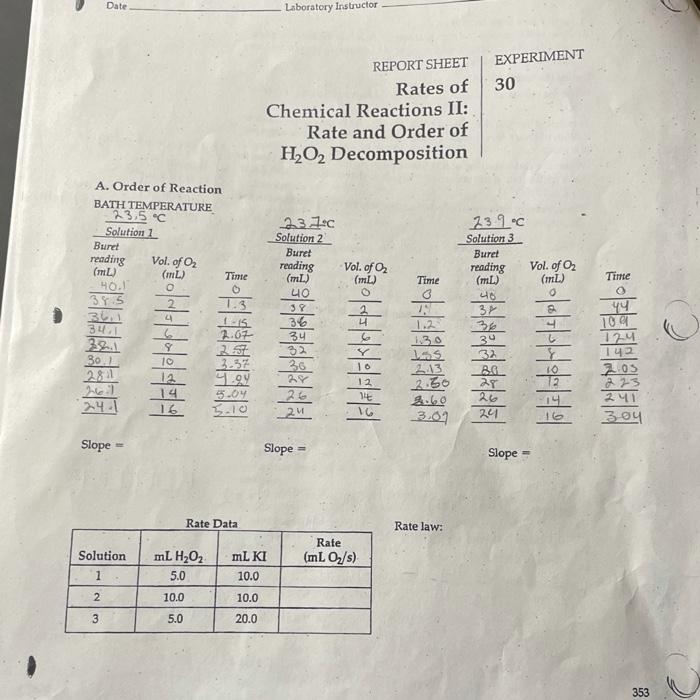 Date Laboratory Instructor
REPORT SHEET EXPERIMENT
Rates of 30
Chemical Reactions II:
Rate and Order of
H₂O₂ Decomposition
A. Order of Reaction
BATH TEMPERATURE
23.5 °C 23.7°C 23.9 °C
Solution 1 Solution 2 Solution 3
Buret Buret Buret
reading Vol. of O₂ reading Vol. of O₂ reading Vol. of O₂
(mL) (mL) Time (mL) (mL) Time (mL) (mL) Time
40.1 0 0 40 0 0 40 0 0
38.5 2 1.3 38 2 38 2 44
36.1 4 1.15 36 4 1.2 36 4 109
34.1 6 2.07 34 6 1.30 34 6 124
32.1 8 2.57 32 8 1.55 32 8 142
30.1 10 3.37 30 10 2.13 30 10 2.03
28.1 12 4.24 28 12 2.30 28 12 223
26.1 14 5.04 26 14 26 14 241
24.1 16 5.10 24 16 3.09 24 16 304
Slope = Slope = Slope =
Rate Data Rate law:
Solution mL H₂O₂ mL KI Rate (mL O₂/s)
1 5.0 10.0
2 10.0 10.0
3 5.0 20.0
353